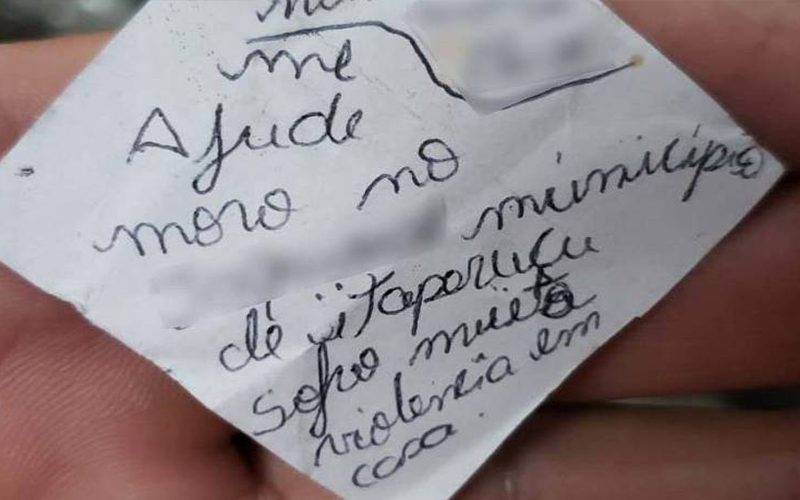 me
Ajude
moro no
município
de itaporuçu
sofro muita
violencia em
casa.